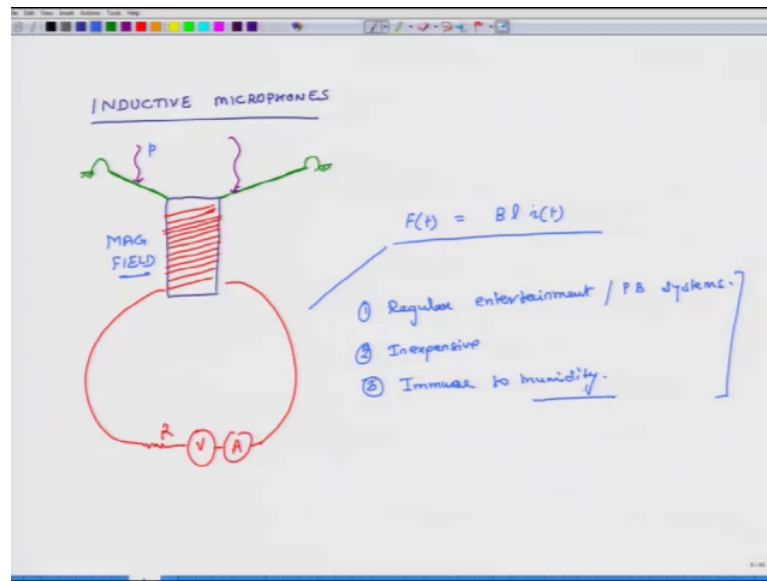 INDUCTIVE MICROPHONES
P
MAG
FIELD
F(t) = B l i(t)
① Regular entertainment / PB systems.
② Inexpensive
③ Immune to humidity.
R
V
A